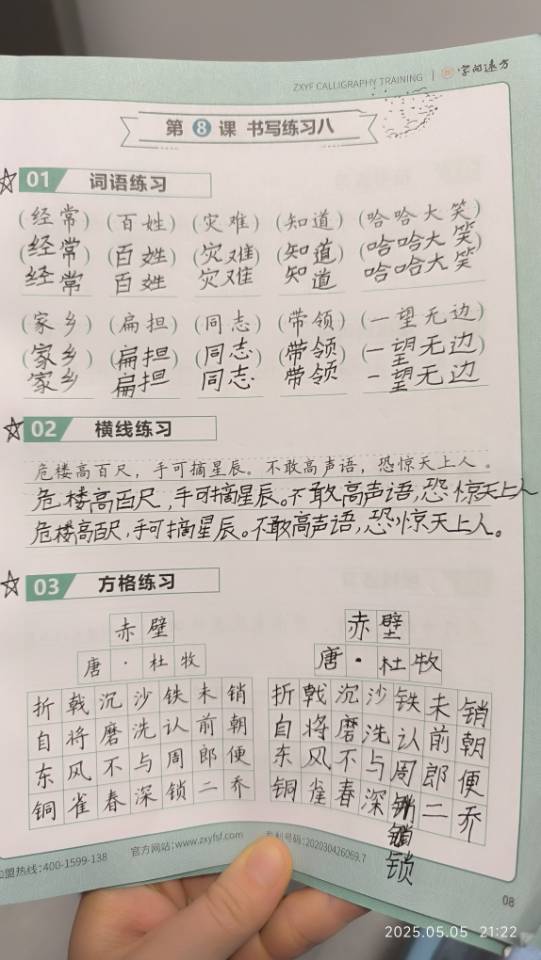 ZXYF CALLIGRAPHY TRAINING | 字的远方
第 8 课 书写练习八
01 词语练习
(经常) (百姓) (灾难) (知道) (哈哈大笑)
(经常) (百姓) (灾难) (知道) (哈哈大笑)
经常 百姓 灾难 知道 哈哈大笑
(家乡) (扁担) (同志) (带领) (一望无边)
(家乡) (扁担) (同志) (带领) (一望无边)
家乡 扁担 同志 带领 一望无边
02 横线练习
危楼高百尺，手可摘星辰。不敢高声语，恐惊天上人。
危楼高百尺，手可摘星辰。不敢高声语，恐惊天上人
危楼高百尺，手可摘星辰。不敢高声语，恐惊天上人。
03 方格练习
赤壁
唐·杜牧
折戟沉沙铁未销
自将磨洗认前朝
东风不与周郎便
铜雀春深锁二乔
赤壁
唐·杜牧
折戟沉沙铁未销
自将磨洗认前朝
东风不与周郎便
铜雀春深二乔
锁
加盟热线：400-1599-138 官方网站：www.zxyfsf.com 专利号码：202030426069.7
08
2025.05.05 21:22